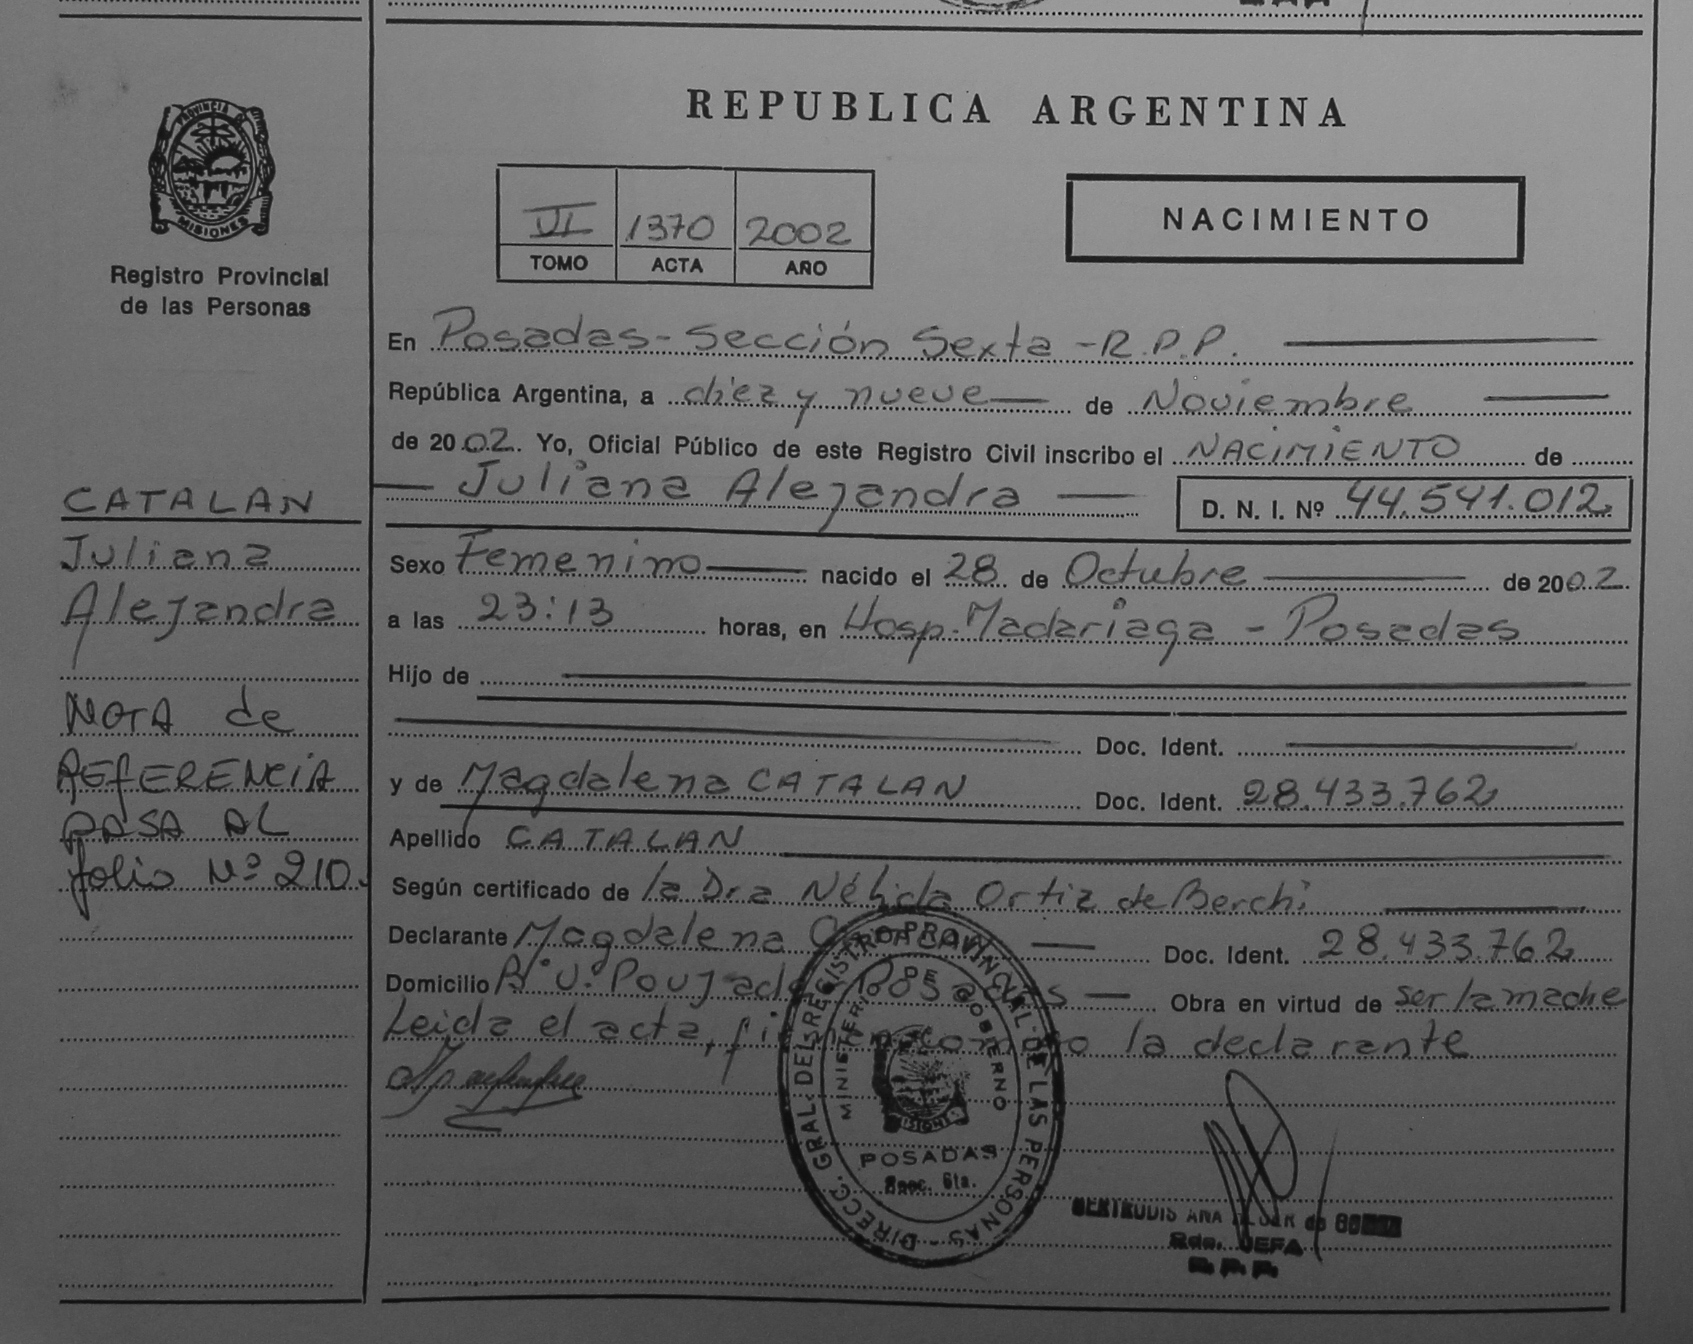 REPUBLICA ARGENTINA
PROVINCIA DE
MISIONES
Registro Provincial
de las Personas
VI 1370 2002
TOMO ACTA AÑO
NACIMIENTO
En Posadas - Sección Sexta - R.P.P.
República Argentina, a diez y nueve de Noviembre
de 2002. Yo, Oficial Público de este Registro Civil inscribo el NACIMIENTO de
Juliana Alejandra D. N. I. Nº 44.541.012
Sexo Femenino nacido el 28 de Octubre de 2002
a las 23:13 horas, en Hosp. Madariaga - Posadas
Hijo de
Doc. Ident.
y de Magdalena CATALAN Doc. Ident. 28.433.762
Apellido CATALAN
Según certificado de la Dra Nélida Ortiz de Berchi
Declarante Magdalena Doc. Ident. 28.433.762
Domicilio Bº U. Posadas Obra en virtud de ser la madre
Leida el acta, la declarante
CATALAN
Juliana
Alejandra
NOTA de
REFERENCIA
PASA AL
folio Nº 210.
DIRECC. GRAL. DEL REGISTRO PROVINCIAL DE LAS PERSONAS
MINISTERIO DE GOBIERNO
MISIONES
POSADAS
Secc. 6ta.
GERTRUDIS ANA de
JEFA
R.P.P.